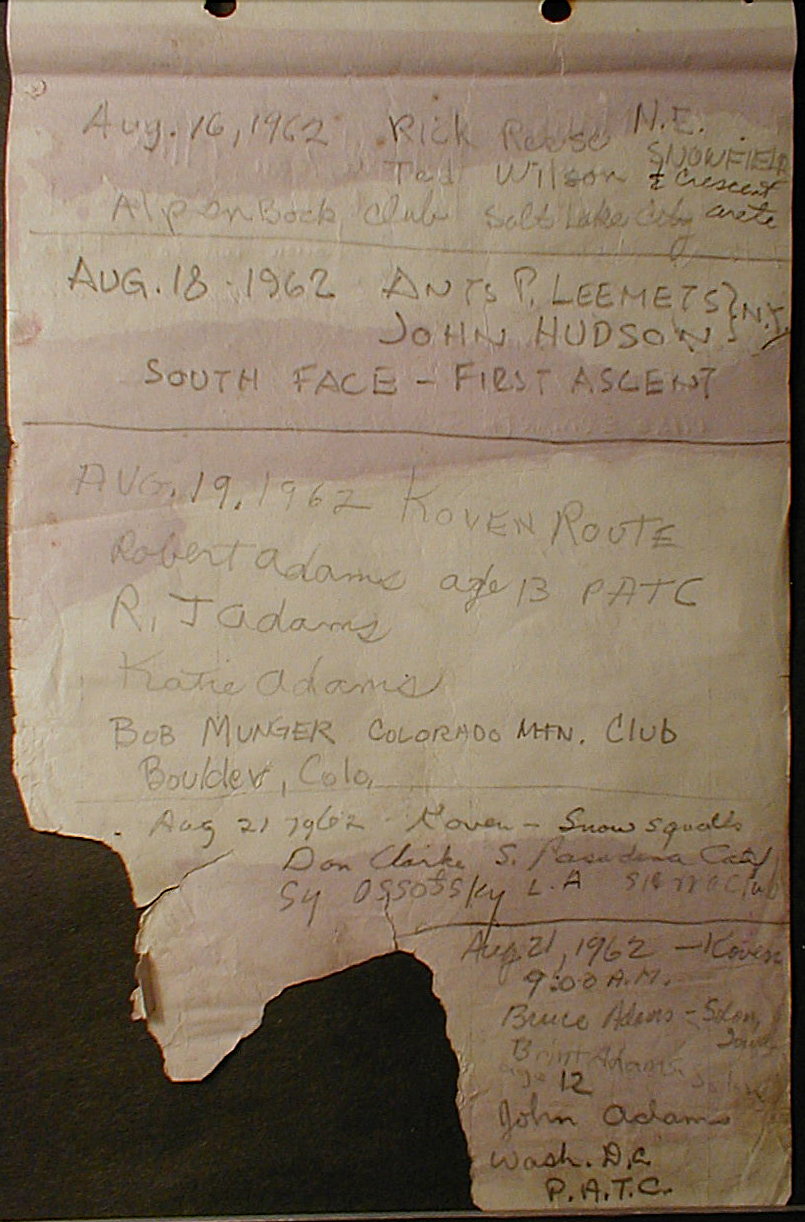 Aug. 16, 1962 Rick Reese N.E.
SNOWFIELD
Ted Wilson & Crescent
AlpenBock Club Salt Lake City arete
AUG. 18 - 1962 ANTS P. LEEMETS } N.Y.
JOHN HUDSON
SOUTH FACE - FIRST ASCENT
AUG. 19, 1962 KOVEN ROUTE
Robert Adams age 13 PATC
R. J Adams
Katie Adams
BOB MUNGER COLORADO MTN. Club
Boulder, Colo.
Aug 21 1962 Koven - Snow squalls
Don Clarke S. Pasadena Calif
Sy OSSOfSky L.A Sierra Club
Aug 21, 1962 - Koven
9:00 A.M.
Bruce Adams - Solon,
Iowa
Adams
age 12
John Adams
Wash. D.C.
P.A.T.C.